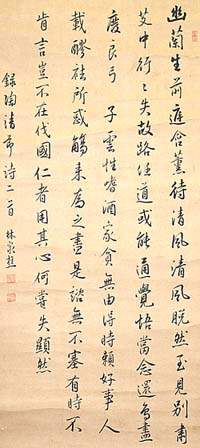 幽蘭生前庭含薰待清風清風脫然至見別蕭
艾中行々失故路任道或能通覺悟當念還鳥盡
廢良弓 子雲性嗜酒家貧無由得時賴好事人
載醪祛所惑觴来為之盡是諮無不塞有時不
肯言豈不在伐國仁者用其心何嘗失顯然
錄陶清節詩二首 林